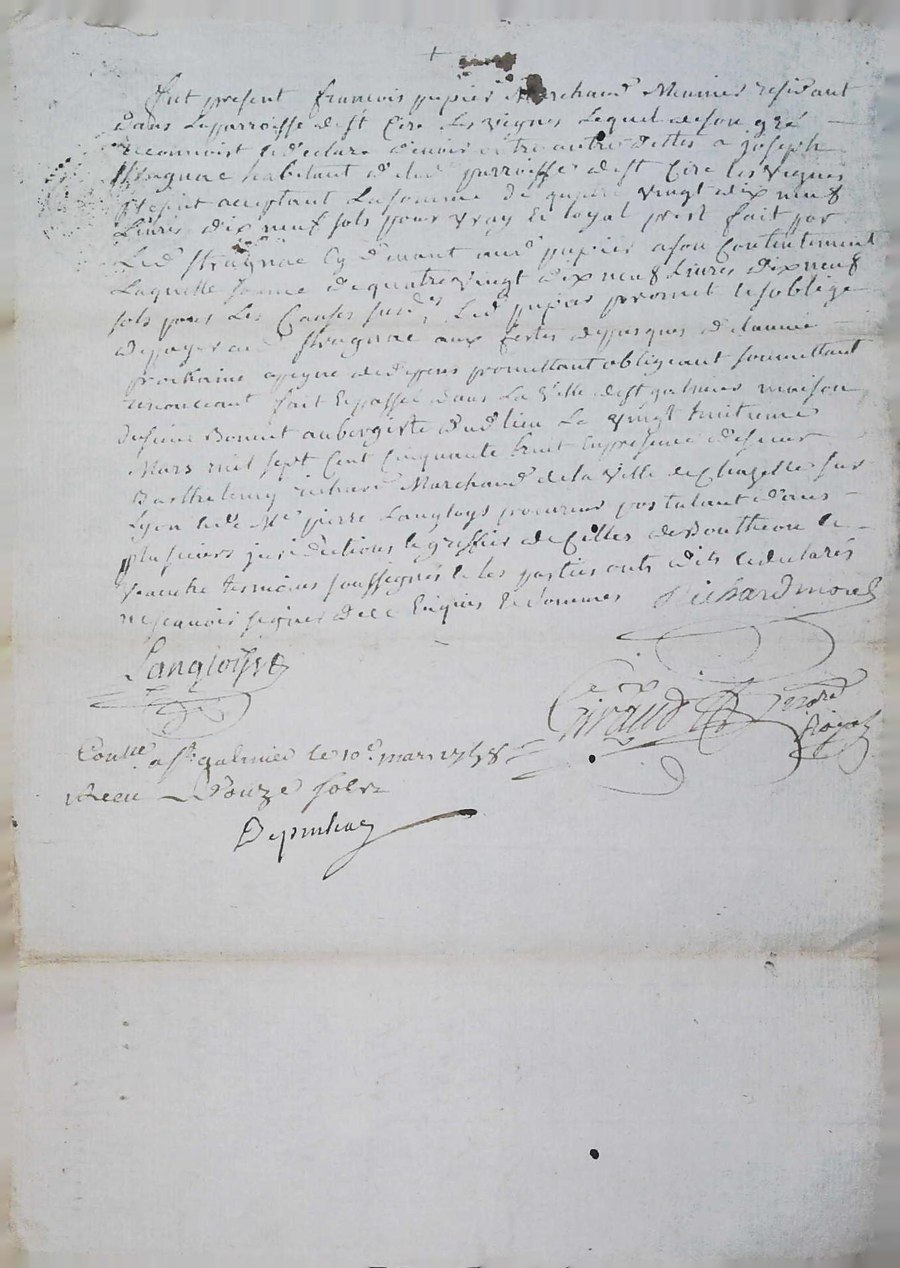 fut present francois pupier Marchand Meunier residant
dans La parroisse de st Cire Les vignes Lequel de son gré
reconnoist et declare d'avoir entre autre dettes a joseph
habitant de lad. parroisse de st Cire Les vignes
present acceptant La somme de quatre vingt dix neuf
Livres dix neuf sols pour vray et loyal prest fait par
Led. Cy devant aud. pupier a son Contentement
Laquelle somme de quatre vingt dix neuf Livres dix neuf
sols pour Les Causes susd. Led. pupier promet et s'oblige
de payer aud. aux festes de pasques de L'année
prochaine a peyne de depens promettant obligeant soumettant
renonceant fait et passé dans La ville de st galmier maison
de sieur Bonnet aubergiste dud. lieu Le vingt huitieme
Mars mil sept Cent Cinquante huit en presence de sieur
Barthelemy richard Marchand de la ville de Chazelle sur
Lyon et Me pierre Langloys procureur postulant dans
plusieurs juridictions et greffier de celles de Boutheon et
Veauche temoins soussignés et les parties onts dits et declarés
ne scavoir signer de ce Enquis et sommés Richardmorel
Langloys
Giraud Nore
Royal
Conlle a st galmier le 10e mars 1758
Receu Douze sols